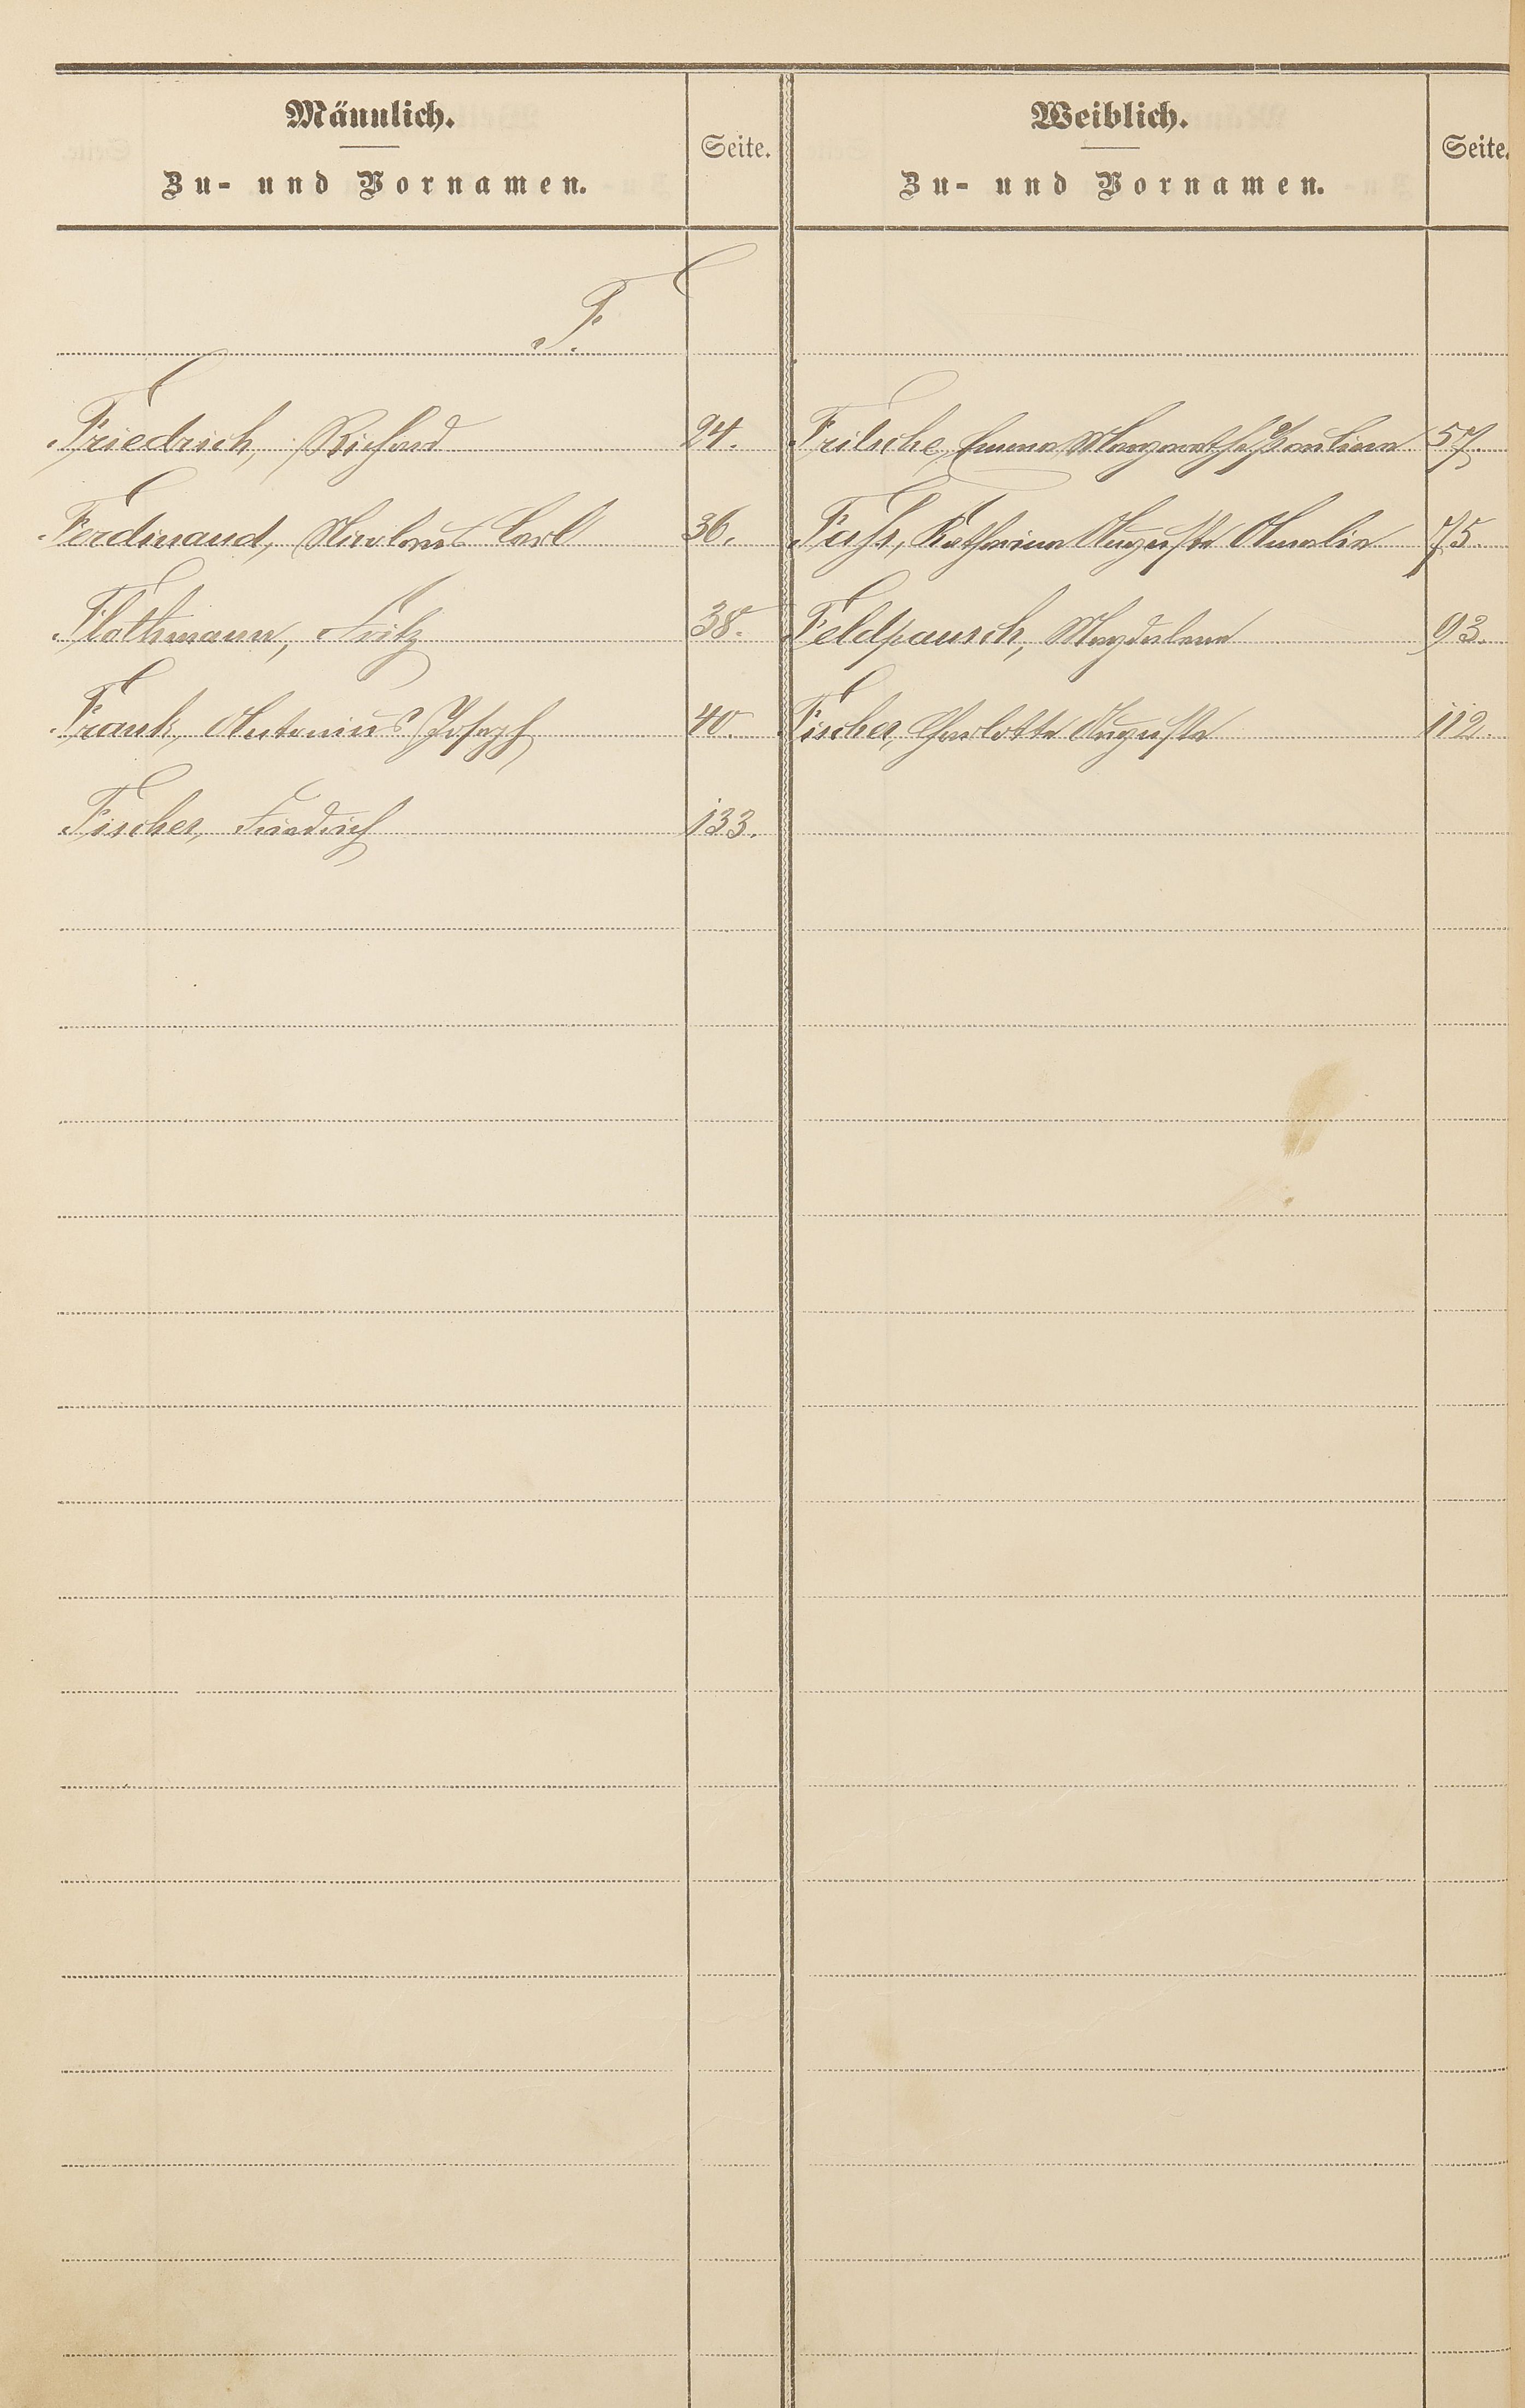 Männlich.
Zu- und Vornamen.
Seite.
Weiblich.
Zu- und Vornamen.
Seite.
F.
Friedrich, Richard 24.
Fritsche, Emma Margarethe Pauline 57.
Ferdinand, Nicolaus Carl 36.
Fuhr, Katharina Auguste Amalie 75.
Flothmann, Fritz 38.
Feldpausch, Magdalena 93.
Frank, Antonius Joseph 40.
Fischer, Charlotte Auguste 112.
Fischer, Friedrich 133.